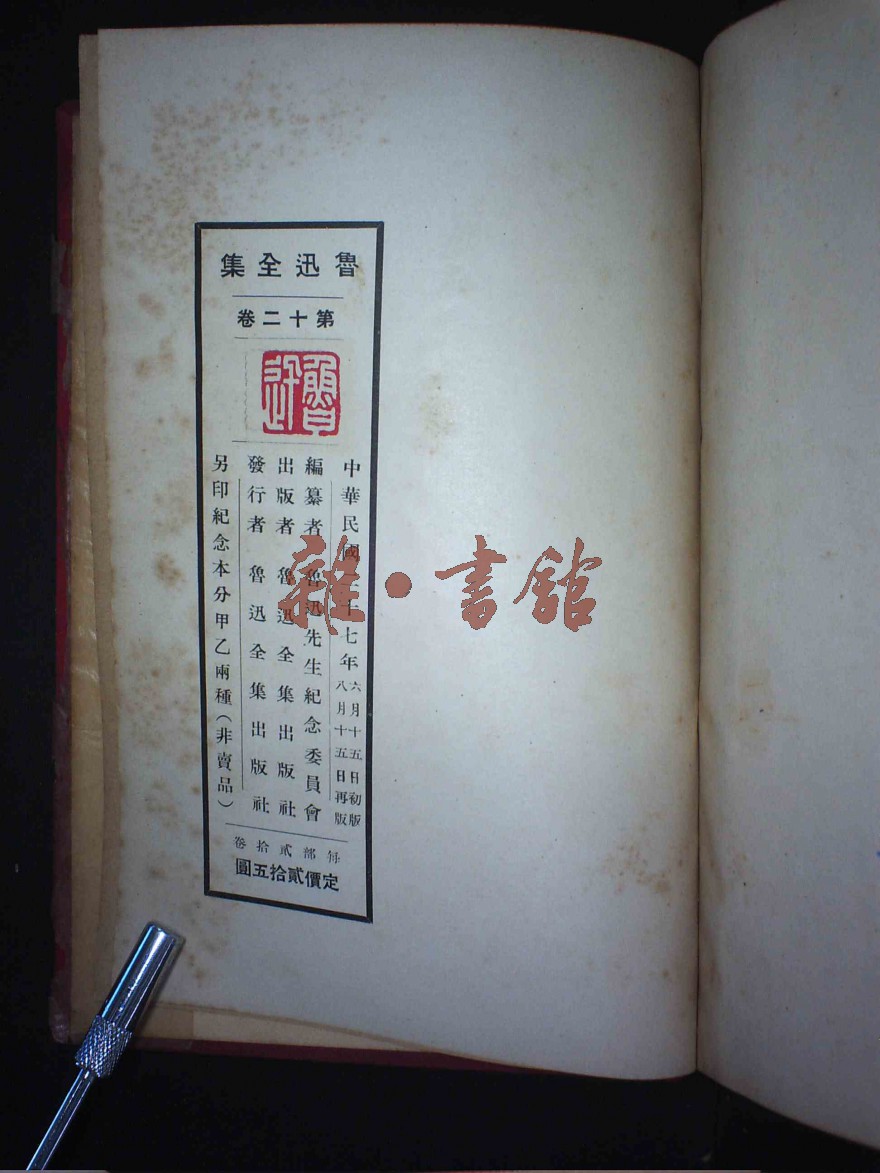 魯迅全集
第十二卷
魯迅
中華民國二十七年
六月十五日初版
八月十五日再版
編纂者 魯迅先生紀念委員會
出版者 魯迅全集出版社
發行者 魯迅全集出版社
另印紀念本分甲乙兩種(非賣品)
每部貳拾卷
定價貳拾五圓
雜·書館